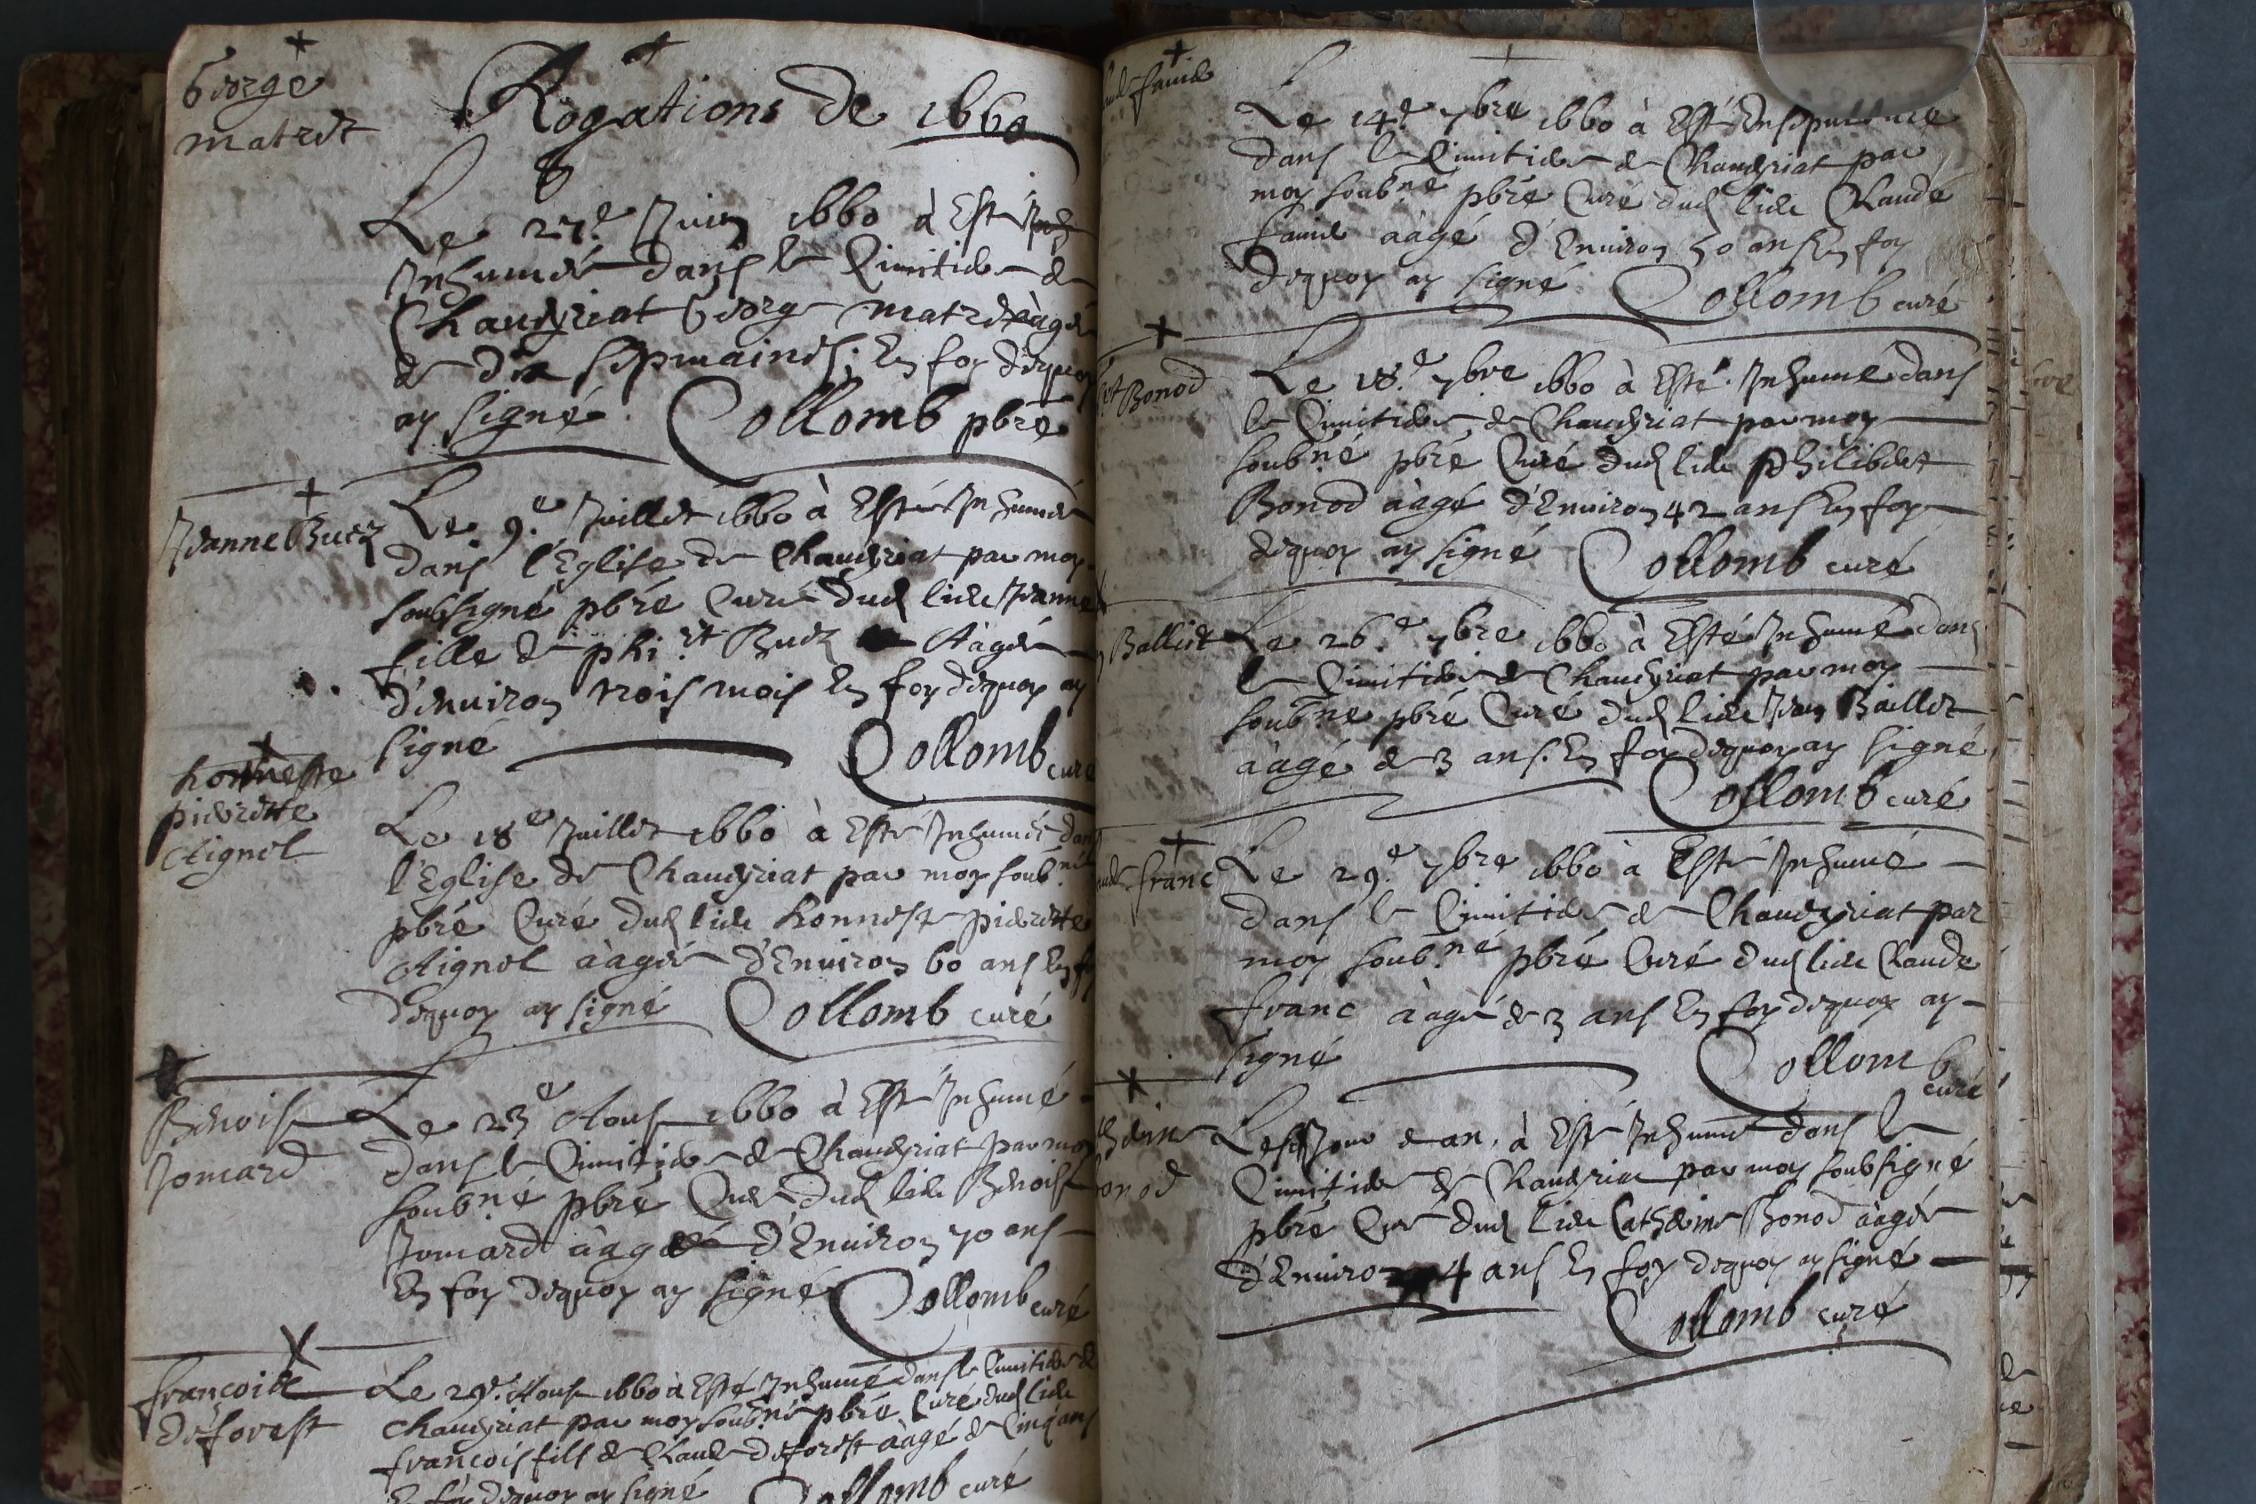 George
matret
Rogations de 1660
Le 27.e Juin 1660 à Esté
Inhumé dans le Cimitiere de
Chaveyriat George matret àagé
de dix sepmaines. En foy dequoy
ay signé. Collomb pbre
Jeanne Buez
Le 9.e Juillet 1660 à Esté Inhumée
dans l'Eglise de Chaveyriat par moy
soubsigné pbre Curé dud lieu Jeanne
fille de phi.rt Buez Aagée
d'environ trois mois En foy dequoy ay
signé Collomb curé
honneste
pierrette
Aignel
Le 18e Juillet 1660 à Esté Inhumée dans
l'Eglise de Chaveyriat par moy soub.né
pbre Curé dud lieu honneste pierrette
Aignel àagée d'Environ 60 ans En foy
dequoy ay signé Collomb curé
Benoist
Jomard
Le 23e Aoust 1660 à Esté Inhumé
dans le Cimitiere de Chaveyriat par moy
soub.né pbre Curé dud lieu Benoist
Jomard àagé d'Environ 70 ans
En foy dequoy ay signé Collomb curé
françois
deforest
Le 29e. Aoust 1660 à Esté Inhumé dans le Cimitiere de
Chaveyriat par moy soub.né pbre Curé dud lieu
françois fils de Claude deforest àagé de Cinq ans
En foy dequoy ay signé Collomb curé
Le 14.e 7bre 1660 à Esté Ensepulturé
dans le Cimitiere de Chaveyriat par
moy soub.né pbre Curé dud lieu Claude
favier àagé d'Environ 50 ans En foy
dequoy ay signé Collomb curé
Bonod
Le 18.e 7bre 1660 à Esté Inhumé dans
le Cimitiere de Chaveyriat par moy
soub.né pbre Curé dud lieu Philibert
Bonod àagé d'Environ 42 ans En foy
dequoy ay signé Collomb curé
Balliet
Le 26.e 7bre 1660 à Esté Inhumé dans
le Cimitiere de Chaveyriat par moy
soub.né pbre Curé dud lieu Jean Baillet
àagé de 3 ans. En foy dequoy ay signé
Collomb curé
franc
Le 29.e 7bre 1660 à Esté Inhumé
dans le Cimitiere de Chaveyriat par
moy soub.né pbre Curé dud lieu Claude
franc àagé de 3 ans En foy dequoy ay
signé Collomb
curé
Lesd Jour et an, à Esté Inhumée dans le
Cimitiere de Chaveyriat par moy soubsigné
pbre Curé dud lieu Catherine Bonod àagée
d'Environ 4 ans En foy dequoy ay signé
Collomb curé